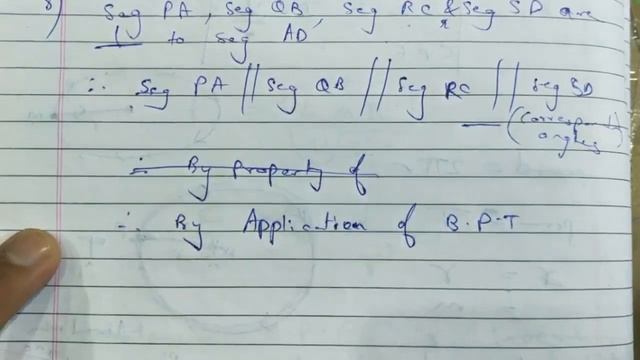 8) Seg PA, Seg QB, Seg RC & Seg SD are
⊥ to Seg AD
∴ Seg PA || Seg QB || Seg RC || Seg SD
— (Correspond angles)
∴ By property of
∴ By Application of B.P.T